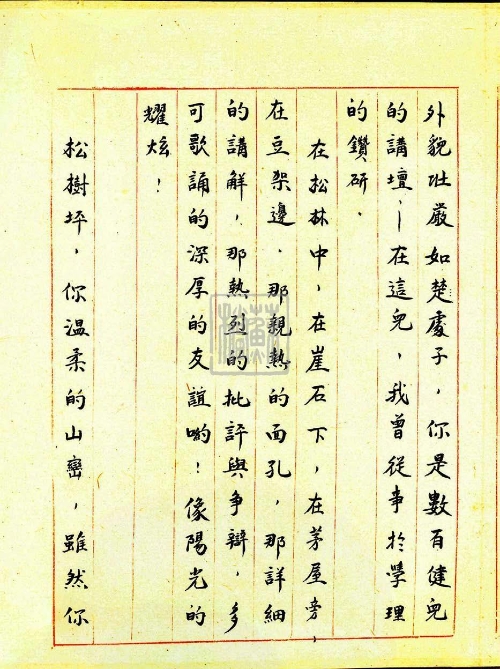 外貌壯嚴如楚處子，你是數百健兒
的講壇；在這兒，我曾從事於學理
的鑽研．
在松林中，在崖石下，在茅屋旁，
在豆架邊．那親熱的面孔，那詳細
的講解，那熱烈的批評與爭辯．多
可歌誦的深厚的友誼喲！像陽光的
耀炫！
松樹坪，你溫柔的山巒，雖然你